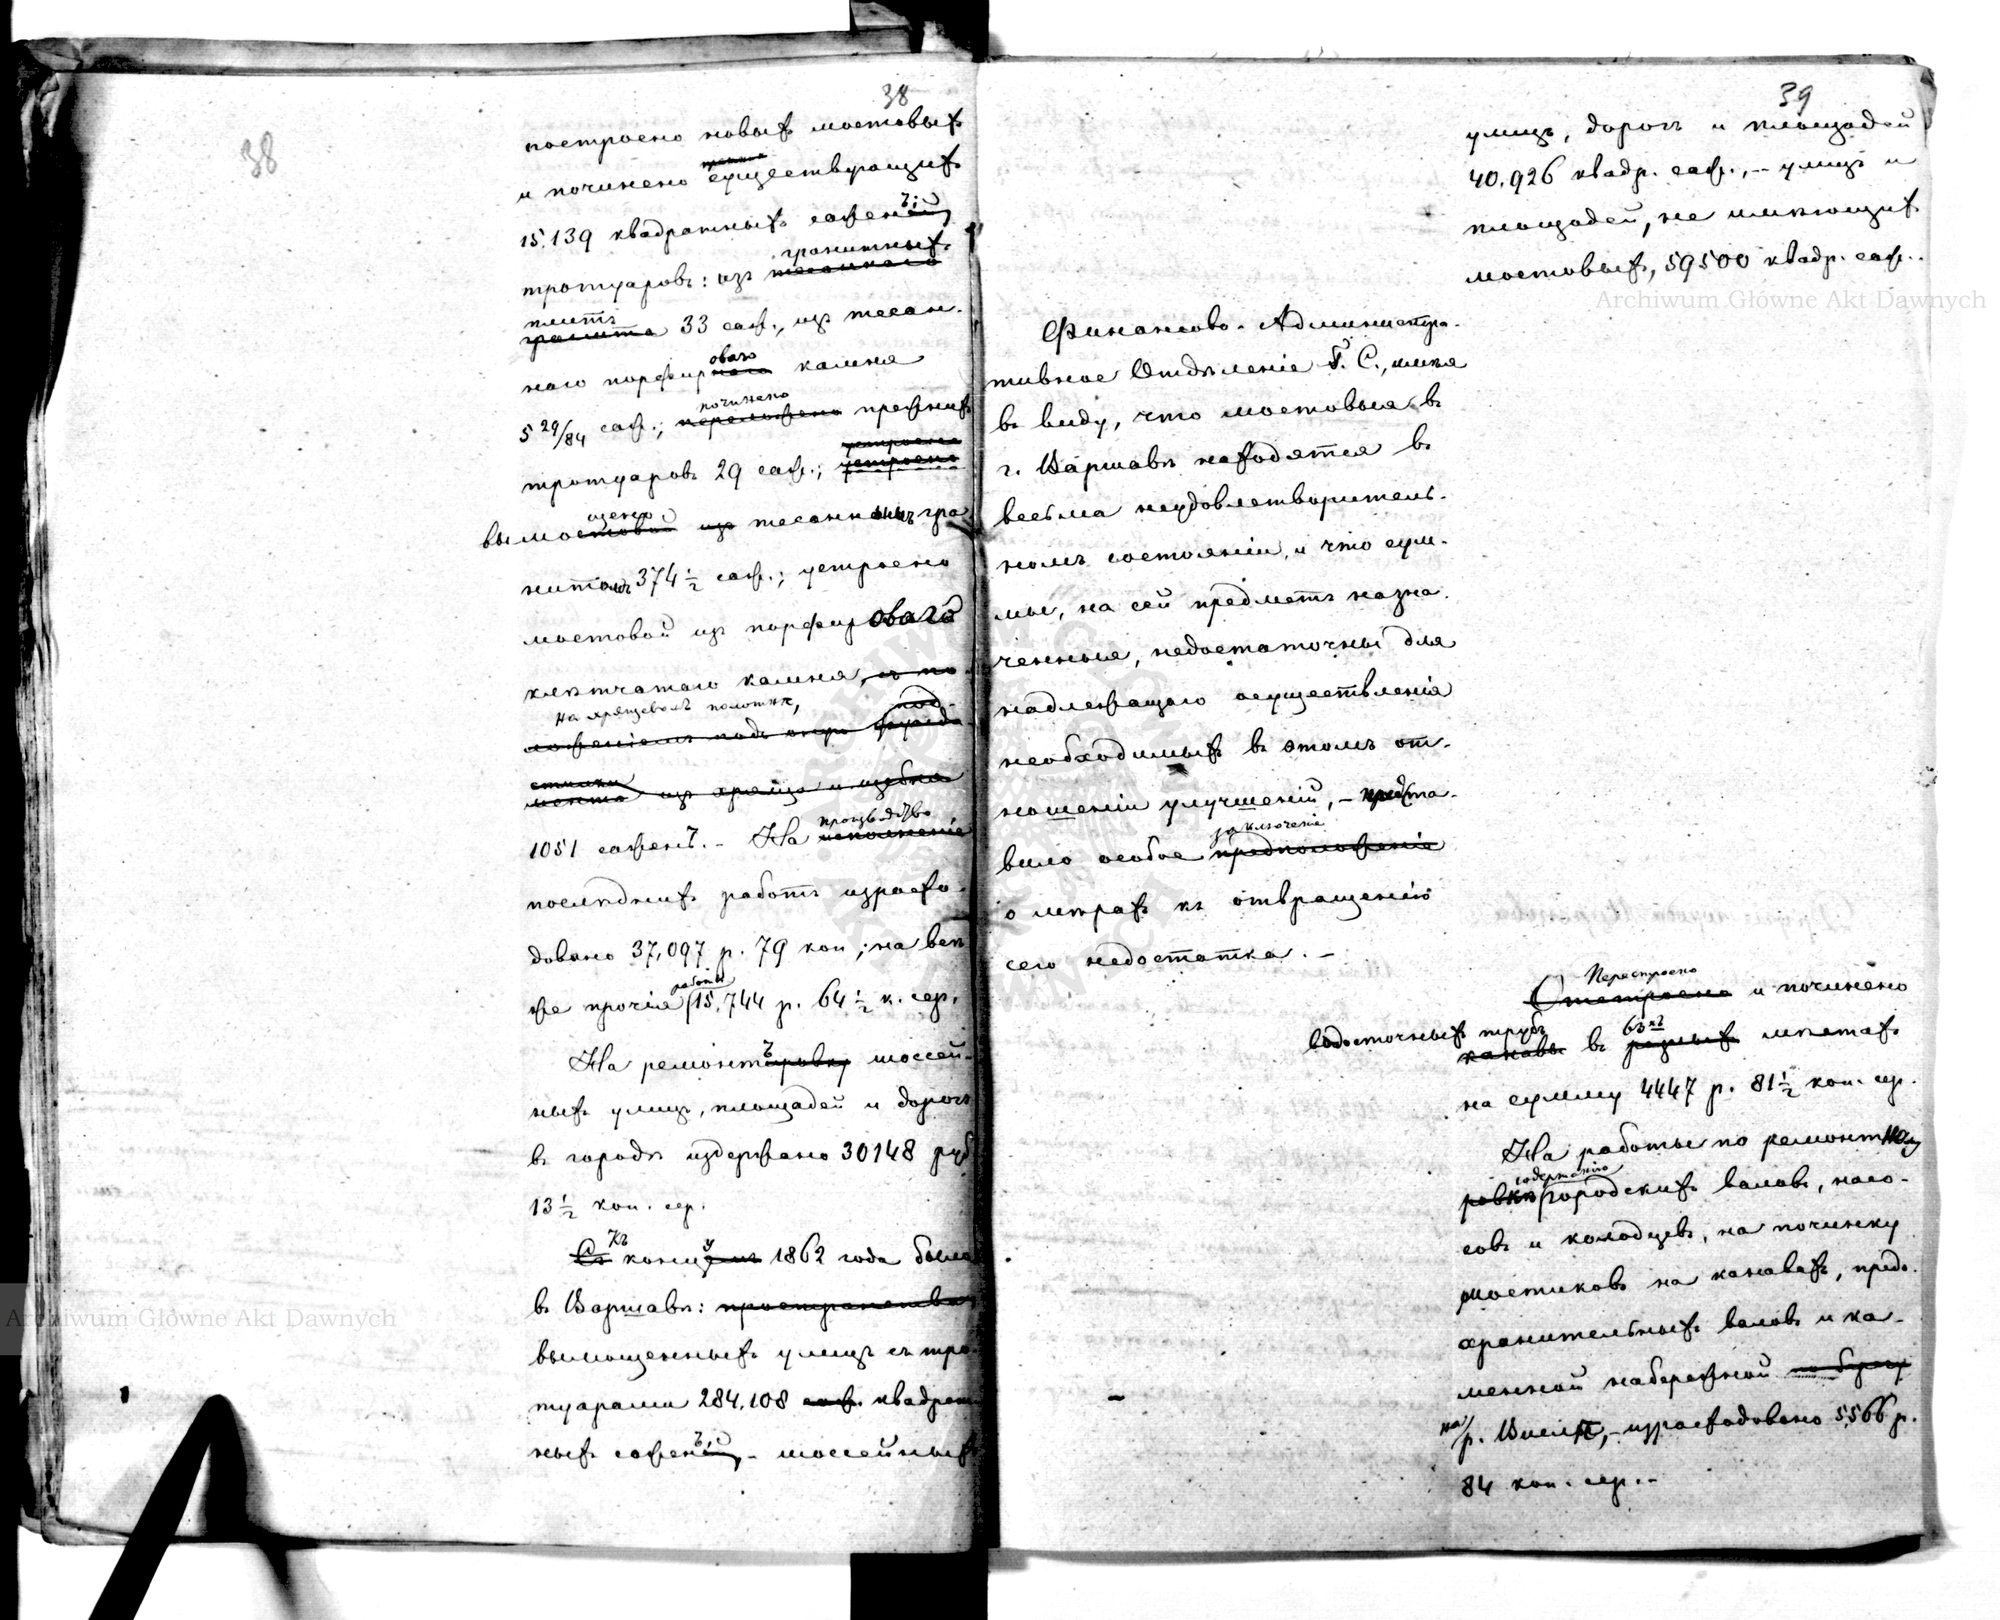 38
38
построено новыхъ мостовыхъ
и починено существующихъ
15.139 квадратныхъ саженъ;
гранитныхъ
тротуаровъ: изъ тесаннаго
плитъ
гранита 33 саж., изъ тесан-
наго порфироваго камня
починено
5 29/84 саж.; переложено прежнихъ
тротуаровъ 29 саж.; устроено
щено
вымостовой изъ тесаннымъ гра-
нитомъ 374 1/2 саж.; устроено
мостовой изъ порфироваго
клѣтчатаго камня, съ по-
на хрящевомъ полотнѣ,
ложеніемъ подъ оную фунда-
мента изъ хряща и щебня
производство
1051 саженъ. - На исполненіе
послѣднихъ работъ израсхо-
довано 37,097 р. 79 коп; на всѣ
работы
же прочія 15,744 р. 64 1/2 к. сер.
На ремонтъ шоссей-
ныхъ улицъ, площадей и дорогъ
въ городѣ издержано 30148 руб
13 1/2 коп. сер.
Къ концу 1862 года было
въ Варшавѣ: пространства
вымощенныхъ улицъ съ тро-
туарами 284.108 саж. квадрат-
ныхъ саженъ; - шоссейныхъ
39
улицъ, дорогъ и площадей
40.926 квадр. саж., - улицъ и
площадей, не имѣющихъ
мостовыхъ, 59500 квадр. саж.
Финансово-Администра-
тивное Отдѣленіе Г. С., имѣя
въ виду, что мостовыя въ
г. Варшавѣ находятся въ
весьма неудовлетворитель-
номъ состояніи, и что сум-
мы, на сей предметъ назна-
ченныя, недостаточны для
надлежащаго осуществленія
необходимыхъ въ этомъ от-
ношеніи улучшеній, - предста-
заключеніе
вило особое предположеніе
о мѣрахъ къ отвращенію
сего недостатка. -
Перестроено
Отстроено и починено
водосточныхъ трубъ 63хъ
каналы въ разныхъ мѣстахъ
на сумму 4447 р. 81 1/2 коп. сер.
На работы по ремонтному
содержанію
ровкѣ городскихъ валовъ, насо-
совъ и колодцевъ, на починку
мостиковъ на канавахъ, предо-
хранительныхъ валовъ и ка-
менной набережной по берегу
на р. Вислѣ, - израсходовано 5566 р.
84 коп. сер. -
Archiwum Główne Akt Dawnych
Archiwum Główne Akt Dawnych